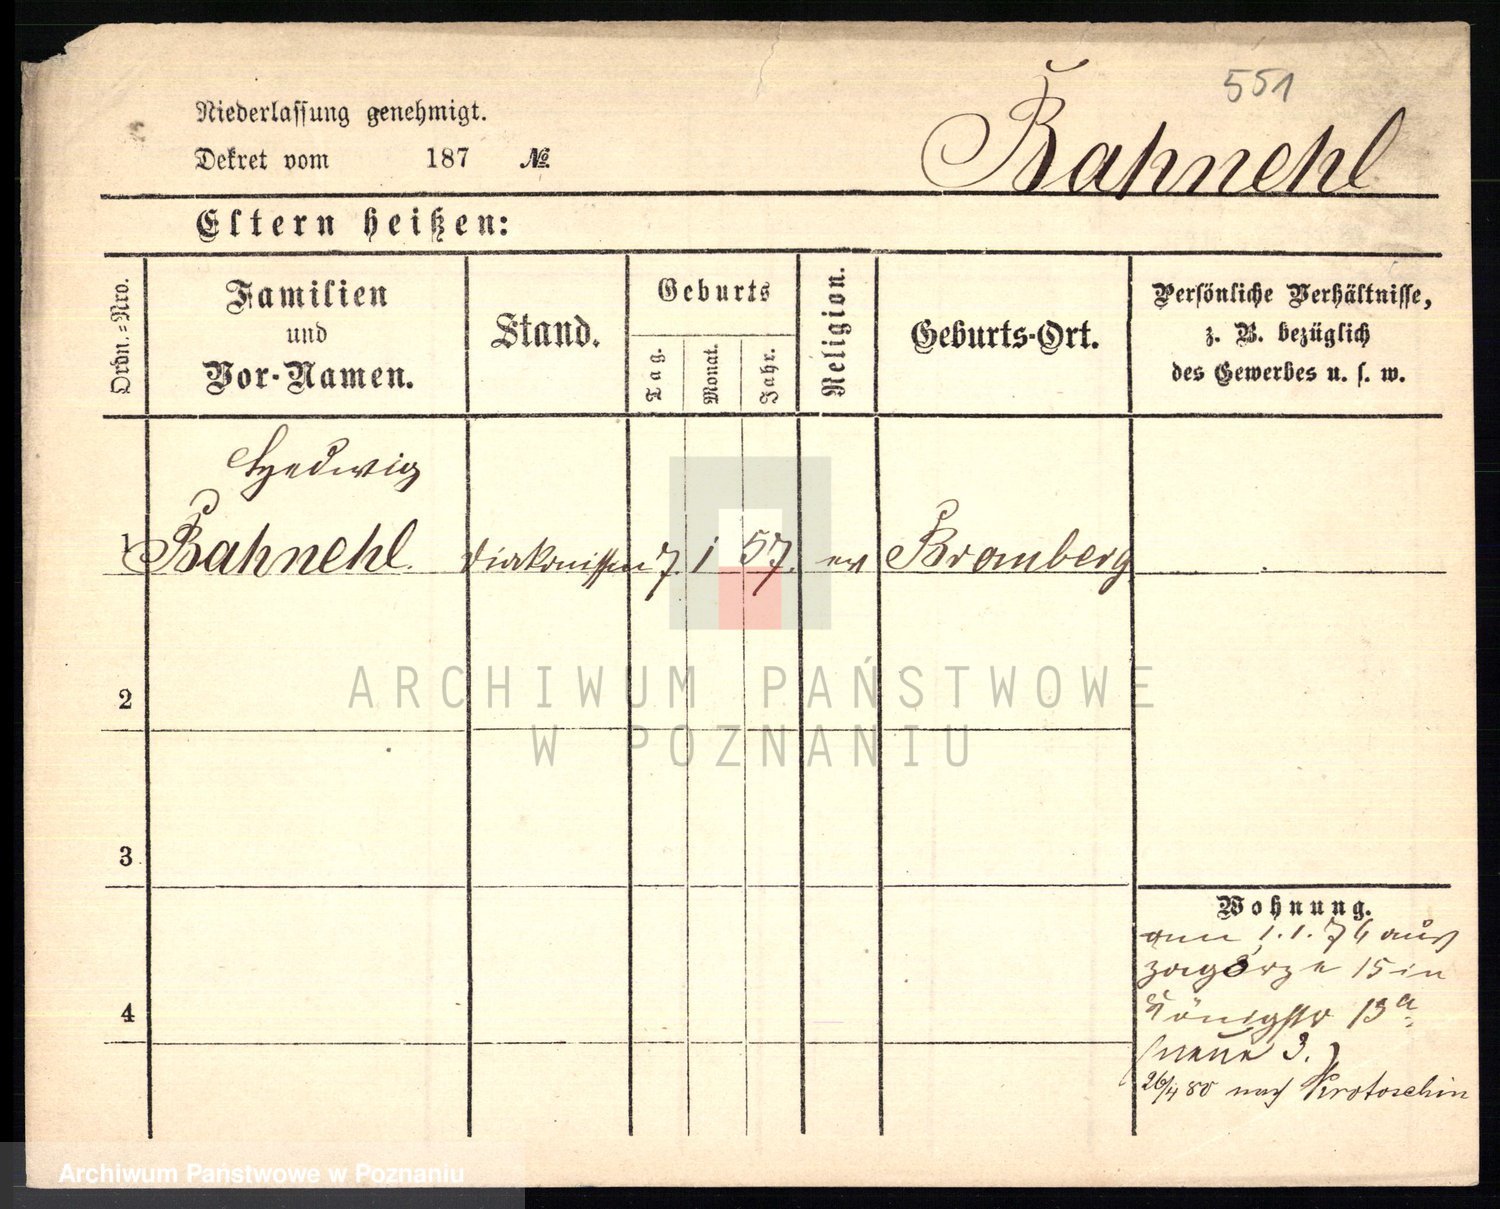 551
Niederlassung genehmigt.
Dekret vom 187 №
Bahnehl
Eltern heißen:
Ordn.=Nro.
Familien
und
Vor-Namen.
Stand.
Geburts
Tag.
Monat.
Jahr.
Religion.
Geburts-Ort.
Persönliche Verhältnisse,
z. B. bezüglich
des Gewerbes u. s. w.
Hedwig
1 Bahnehl. Diakonissen 7. 1 57. ev Bromberg
2
3
4
Wohnung.
1.1.76 aus
Zagórze 15 in
Königstr 13a
neue 3.)
26/4 80 nach Krotoschin
ARCHIWUM PAŃSTWOWE
W POZNANIU
Archiwum Państwowe w Poznaniu